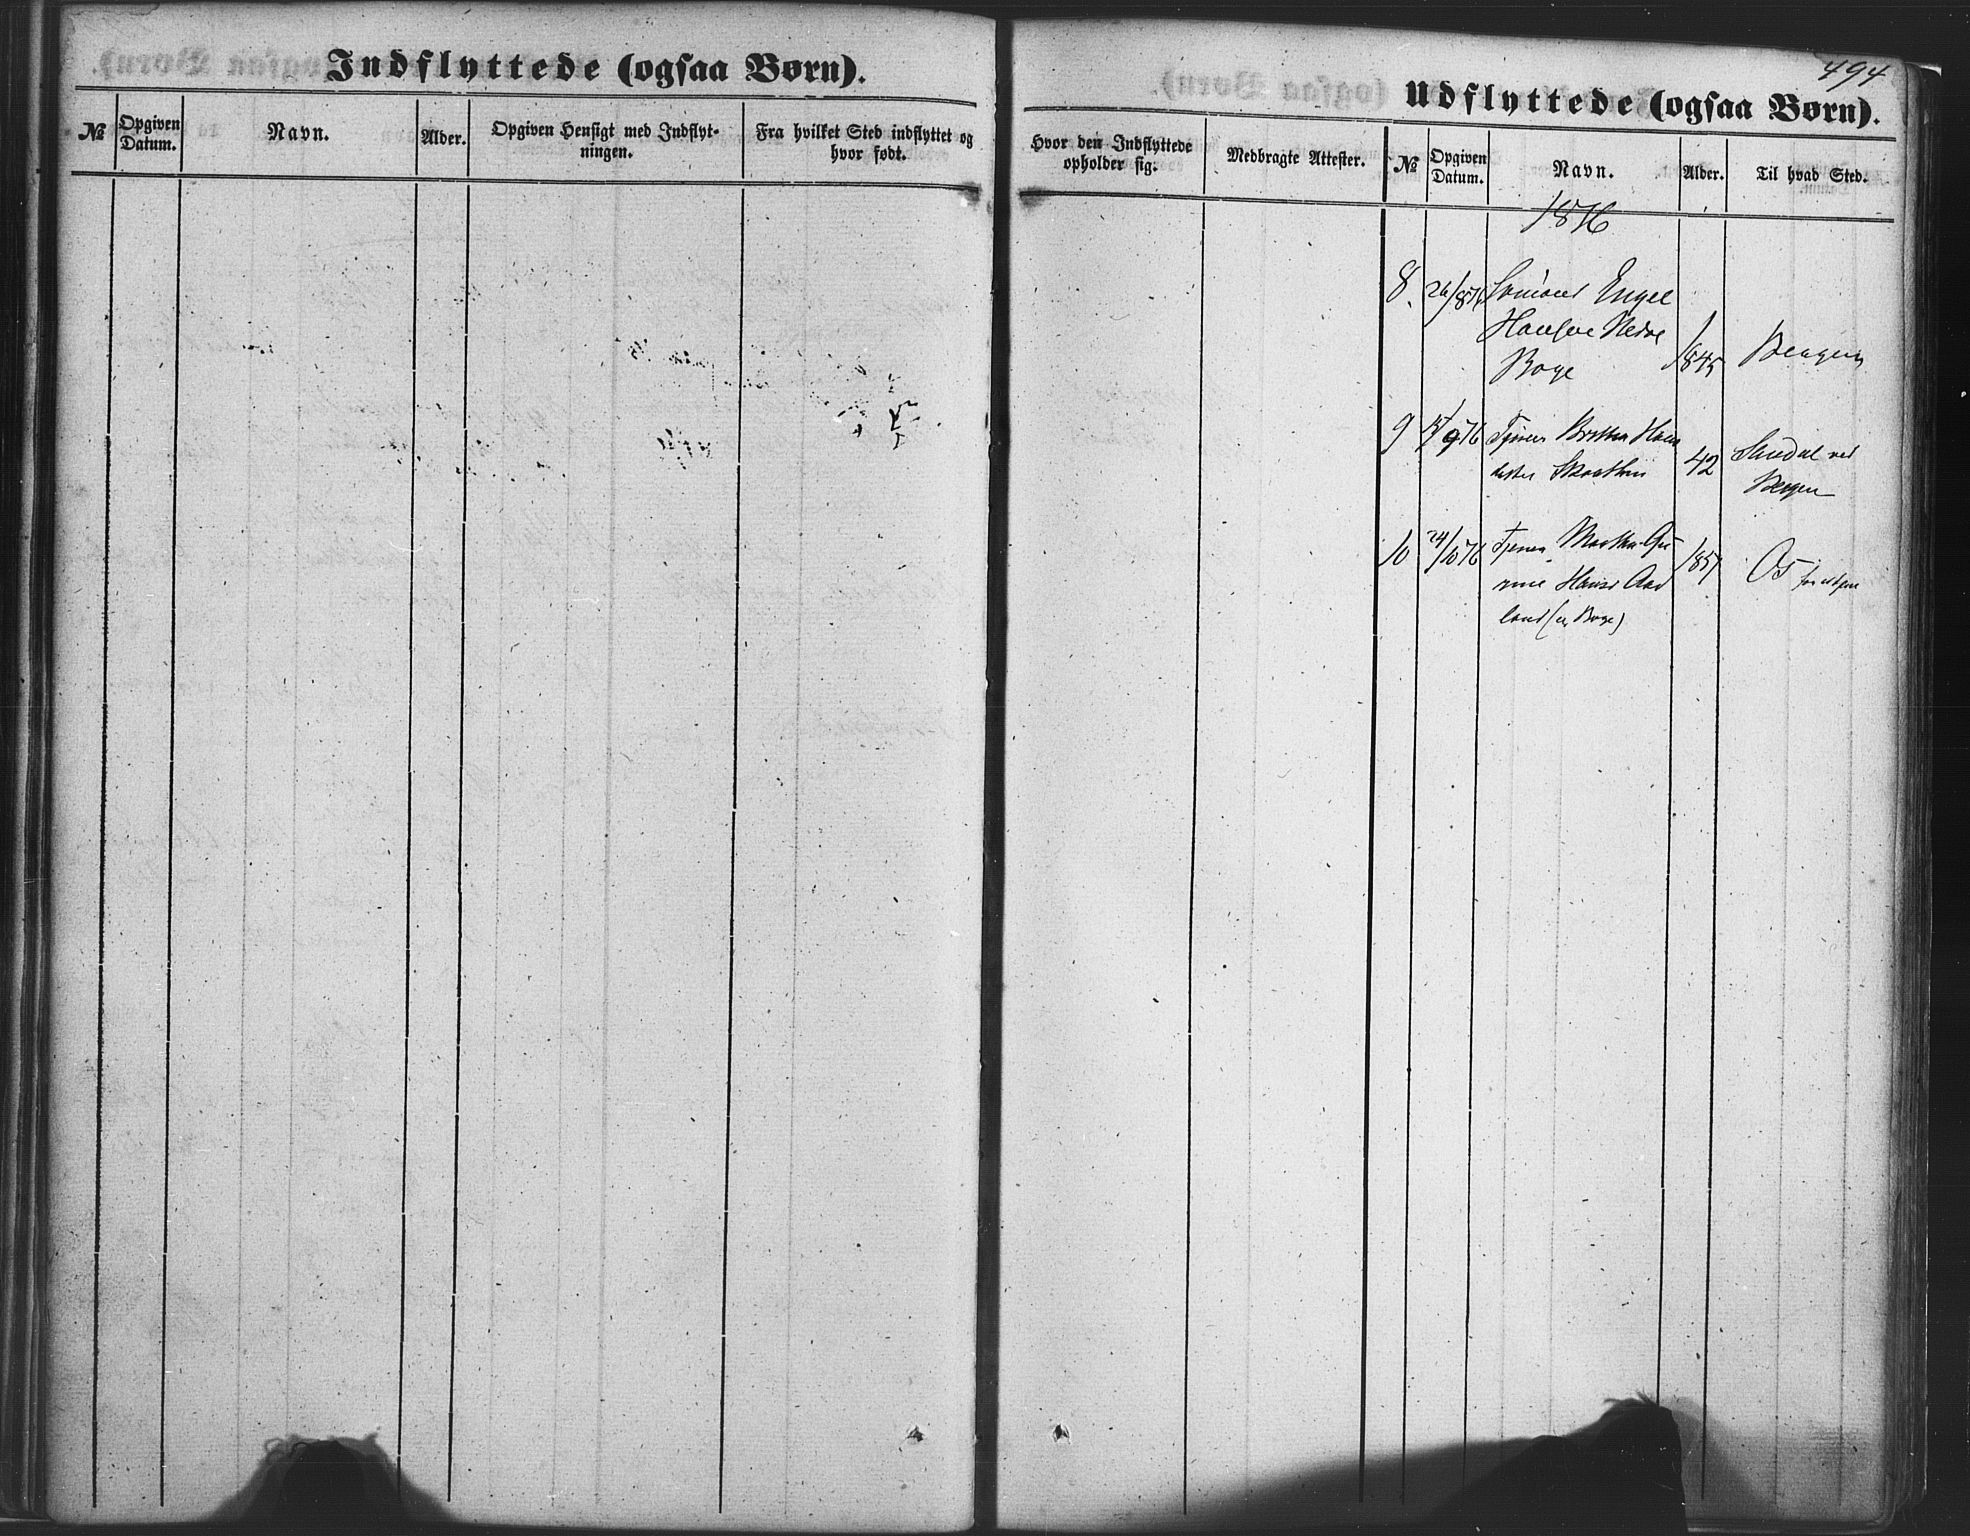 Indflyttede (ogsaa Børn).
№
Opgiven Datum.
Navn.
Alder.
Opgiven Hensigt med Indflyt-
ningen.
Fra hvilket Sted indflyttet og
hvor født.
494
Udflyttede (ogsaa Børn).
Hvor den Indflyttede
opholder sig.
Medbragte Attester.
№
Opgiven Datum.
Navn.
Alder.
Til hvad Sted.
1876
8. 26/8 76 Engel
Nedre
Boge 1845 Bergen
9 /9 76 Britha Hans
datter 42 ved
Bergen
10 24/10 76 Martha Gu
Hansd Aad
land (Boge) 1857 Os